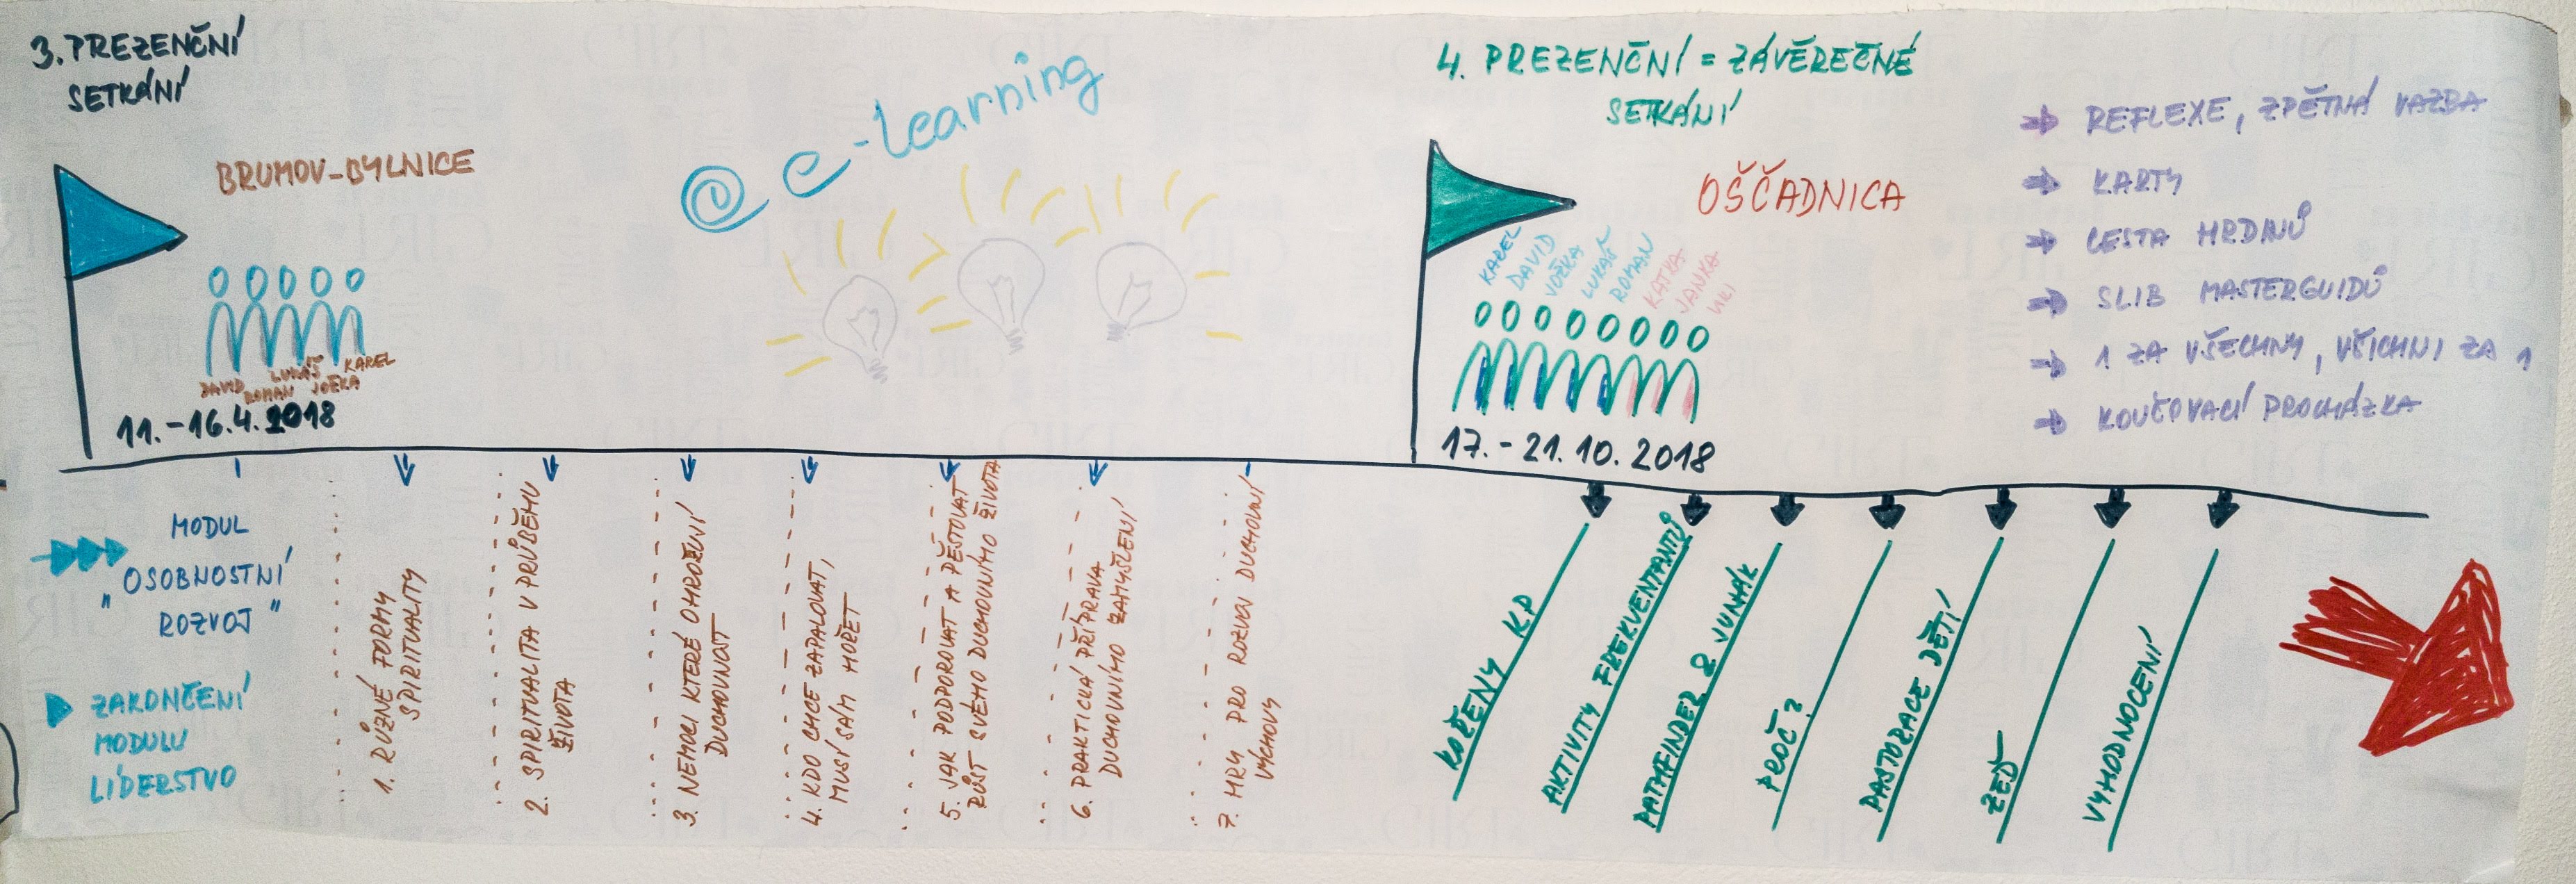 3. PREZENČNÍ
SETKÁNÍ
BRUMOV-BYLNICE
DAVID
ROMAN
LUKÁŠ
JOŽKA
KAREL
11.-16.4.2018
@ e-learning
4. PREZENČNÍ = ZÁVĚREČNÉ
SETKÁNÍ
OŠČADNICA
KAREL
DAVID
JOŽKA
LUKÁŠ
ROMAN
KATKA
JANKA
17.-21.10.2018
REFLEXE, ZPĚTNÁ VAZBA
KARTY
CESTA HRDINŮ
SLIB MASTERGUIDŮ
1 ZA VŠECHNY, VŠICHNI ZA 1
KOUČOVACÍ PROCHÁZKA
MODUL
"OSOBNOSTNÍ
ROZVOJ"
ZAKONČENÍ
MODULU
LÍDERSTVO
1. RŮZNÉ FORMY
SPIRITUALITY
2. SPIRITUALITA V PRŮBĚHU
ŽIVOTA
3. NEMOCI KTERÉ OHROŽUJÍ
DUCHOVNOST
4. KDO CHCE ZAPALOVAT,
MUSÍ SÁM HOŘET
5. JAK PODPOROVAT A PĚSTOVAT
RŮST SVÉHO DUCHOVNÍHO ŽIVOTA
6. PRAKTICKÁ PŘÍPRAVA
DUCHOVNÍHO ZAMYŠLENÍ
7. HRY PRO ROZVOJ DUCHOVNÍ
VÝCHOVY
KOŘENY KP
AKTIVITY FREKVENTANTŮ
PATHFINDER & JUNÁK
PROČ?
PASTORACE DĚTÍ
ZEĎ
VYHODNOCENÍ